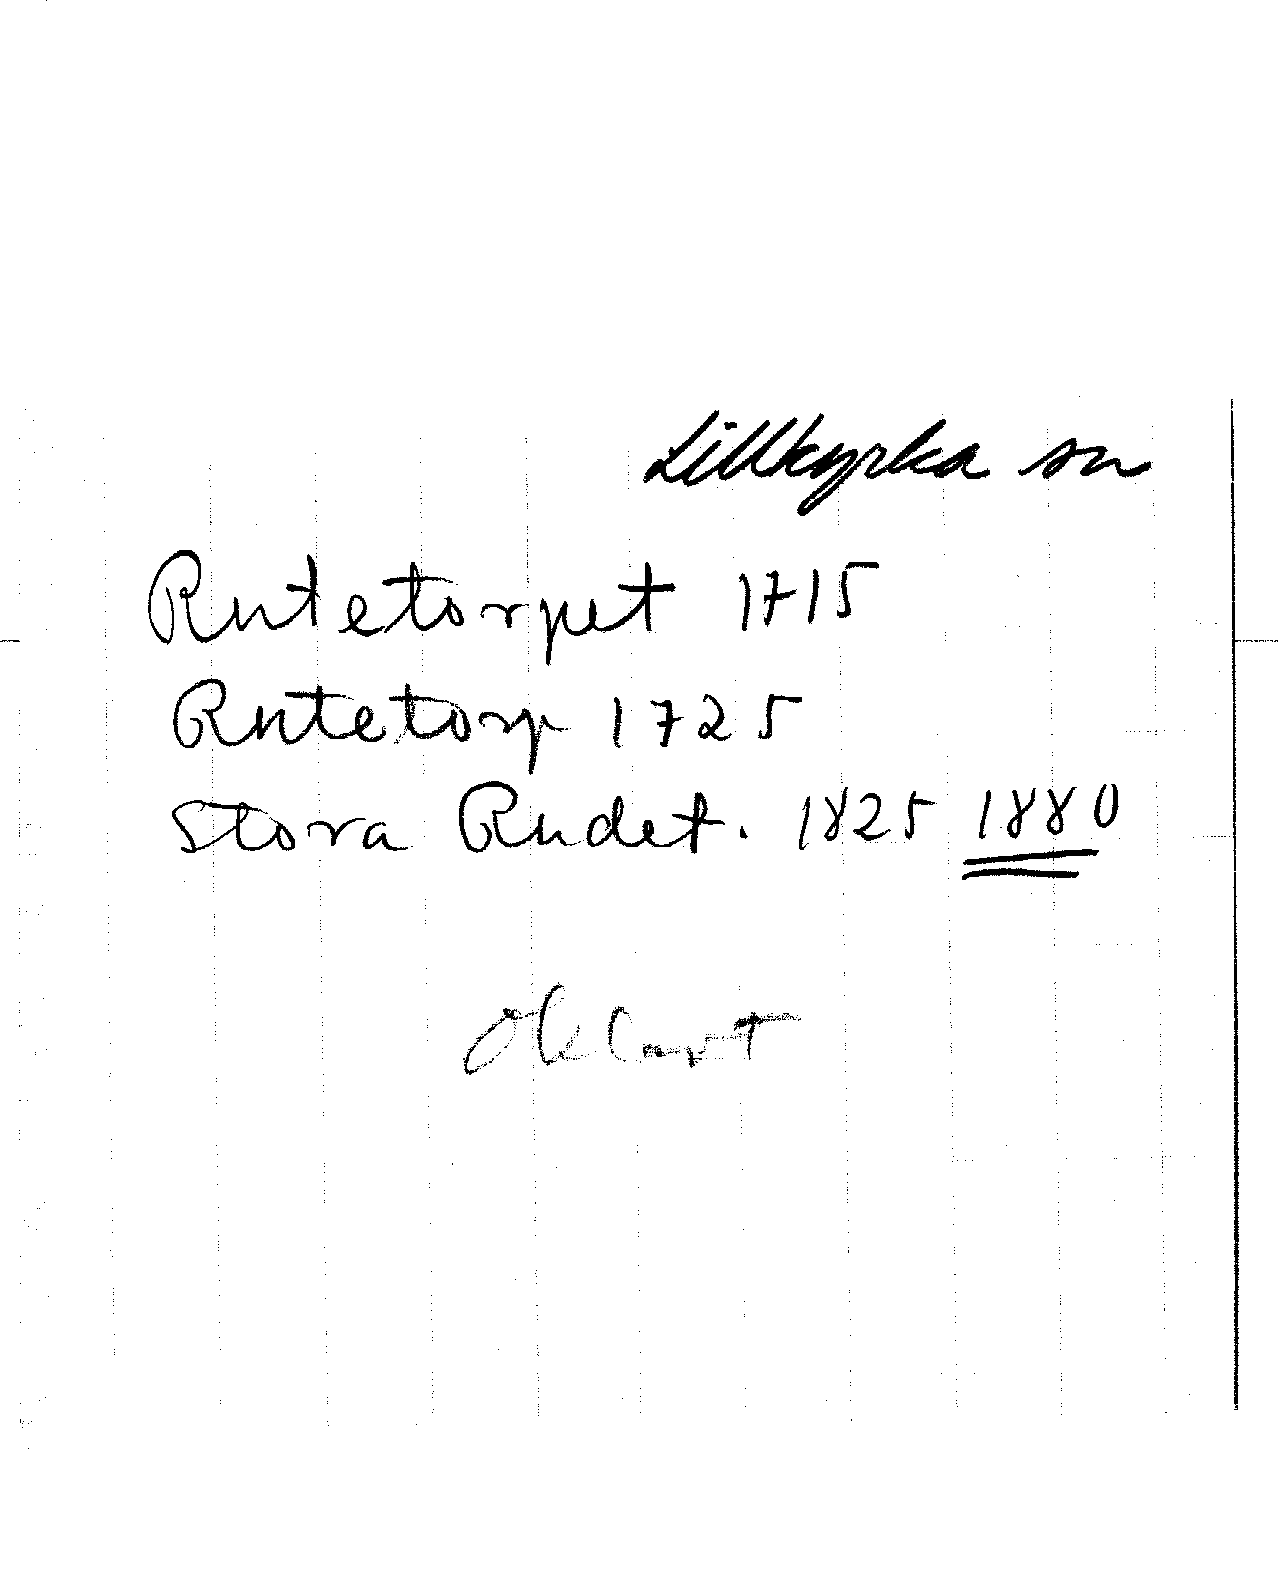 Lillkyrka sn
Rutetorpet 1715
Rutetorp 1725
Stora Rudet. 1825 1880
Oklart